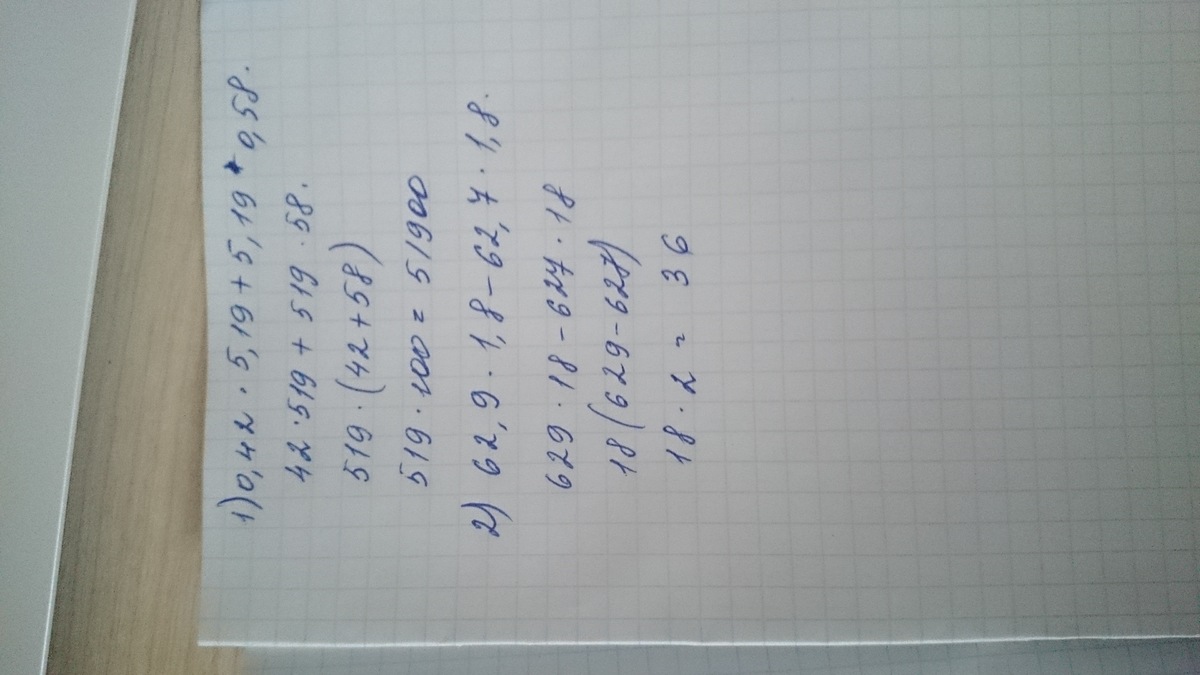 1) 0,42 · 5,19 + 5,19 · 0,58.
42 · 519 + 519 · 58.
519 · (42 + 58)
519 · 100 = 51900
2) 62,9 · 1,8 - 62,7 · 1,8.
629 · 18 - 627 · 18
18 (629 - 627)
18 · 2 = 36